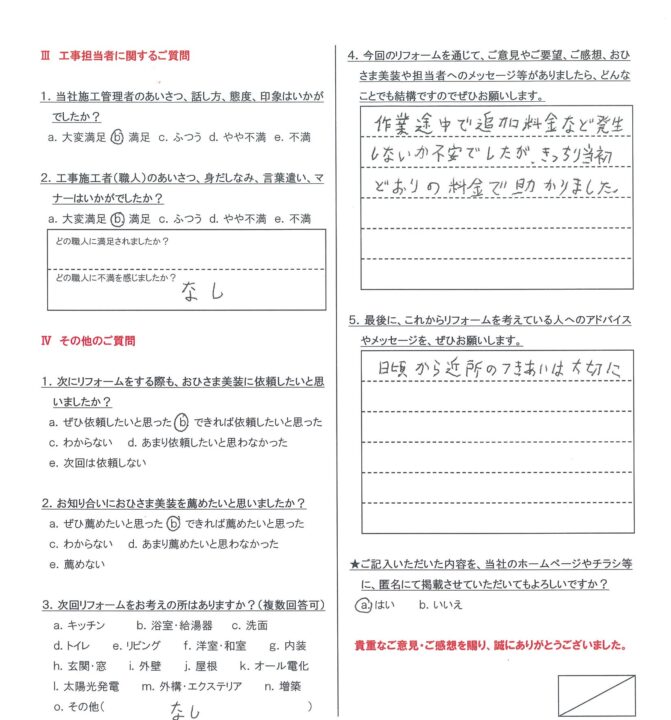 Ⅲ 工事担当者に関するご質問
1. 当社施工管理者のあいさつ、話し方、態度、印象はいかが
でしたか？
a. 大変満足 b. 満足 c. ふつう d. やや不満 e. 不満
2. 工事施工者（職人）のあいさつ、身だしなみ、言葉遣い、マ
ナーはいかがでしたか？
a. 大変満足 b. 満足 c. ふつう d. やや不満 e. 不満
どの職人に満足されましたか？
どの職人に不満を感じましたか？
なし
Ⅳ その他のご質問
1. 次にリフォームをする際も、おひさま美装に依頼したいと思
いましたか？
a. ぜひ依頼したいと思った b. できれば依頼したいと思った
c. わからない d. あまり依頼したいと思わなかった
e. 次回は依頼しない
2. お知り合いにおひさま美装を薦めたいと思いましたか？
a. ぜひ薦めたいと思った b. できれば薦めたいと思った
c. わからない d. あまり薦めたいと思わなかった
e. 薦めない
3. 次回リフォームをお考えの所はありますか？（複数回答可）
a. キッチン b. 浴室・給湯器 c. 洗面
d. トイレ e. リビング f. 洋室・和室 g. 内装
h. 玄関・窓 i. 外壁 j. 屋根 k. オール電化
l. 太陽光発電 m. 外構・エクステリア n. 増築
o. その他（ なし ）
4. 今回のリフォームを通じて、ご意見やご要望、ご感想、おひ
さま美装や担当者へのメッセージ等がありましたら、どんな
ことでも結構ですのでぜひお願いします。
作業途中で追加料金など発生
しないか不安でしたが、きっちり当初
どおりの料金で助かりました。
5. 最後に、これからリフォームを考えている人へのアドバイス
やメッセージを、ぜひお願いします。
日頃から近所のつきあいは大切に
★ご記入いただいた内容を、当社のホームページやチラシ等
に、匿名にて掲載させていただいてもよろしいですか？
a. はい b. いいえ
貴重なご意見・ご感想を賜り、誠にありがとうございました。